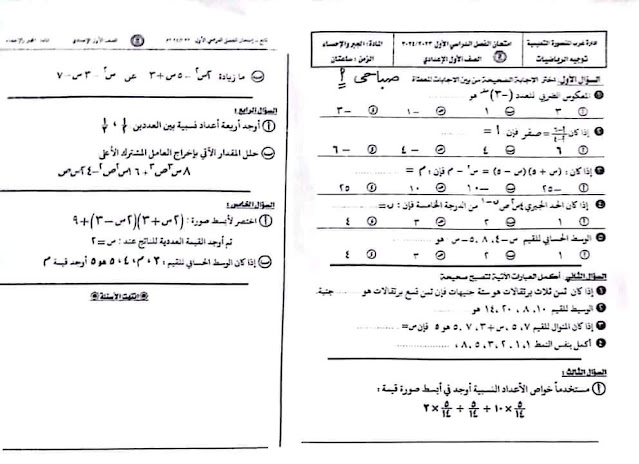 إدارة غرب المنصورة التعليمية
توجيه الرياضيات
امتحان الفصل الدراسي الأول ٢٠٢٤/٢٠٢٣
الصف الأول الإعدادي
المادة: الجبر والإحصاء
الزمن: ساعتان
صباحي
السؤال الأول: اختر الإجابة الصحيحة من بين الإجابات المعطاة
١ المعكوس الضربي للعدد (-٣)صفر هو ............
أ ٣ ب ١ ج -١ د -٣
٢ إذا كان = صفر فإن أ = ............
أ ٦ ب ٤ ج -٤ د -٦
٣ إذا كان: (س + ٥)(س - ٥) = س٢ - م فإن: م = ............
أ -٢٥ ب -١٠ ج ١٠ د ٢٥
٤ إذا كان الحد الجبري من الدرجة الخامسة فإن: ن = ............
أ ١ ب ٢ ج ٣ د ٤
٥ الوسط الحسابي للقيم س-٤، ٨، ٥-س هو ............
أ ١ ب ٢ ج ٣ د ٤
السؤال الثاني: أكمل العبارات الآتية لتصبح صحيحة
١ إذا كان ثمن ثلاث برتقالات هو ستة جنيهات فإن ثمن تسع برتقالات هو ............ جنية.
٢ الوسيط للقيم ١٠، ٨، ٢٠، ١٤ هو ............
٣ إذا كان المنوال للقيم ٧، ٥، س+٣، ٧، ٥ هو ٥ فإن س= ............
٤ أكمل بنفس النمط ١، ١، ٢، ٣، ٥، ٨، ............
السؤال الثالث:
أ مستخدماً خواص الأعداد النسبية أوجد في أبسط صورة قيمة :
٥/١٤ × ١٠ + ٥/١٤ + ٥/١٤ × ٢
الصف الأول الإعدادي
ب ما زيادة ٢س٢ - ٥س + ٣ عن س٢ - ٣س - ٧
السؤال الرابع:
أ أوجد أربعة أعداد نسبية بين العددين
ب حلل المقدار الآتي بإخراج العامل المشترك الأعلى
٨س٣ص٣ + ١٦س٢ص٢ - ٢٤س ص
السؤال الخامس:
أ اختصر لأبسط صورة : (٢س+٣)(٢س-٣)+٩
ثم أوجد القيمة العددية للناتج عند: س = ٢
ب إذا كان الوسط الحسابي للقيم : ٢، م، ٤، ٥ هو ٥ أوجد قيمة م
انتهت الأسئلة